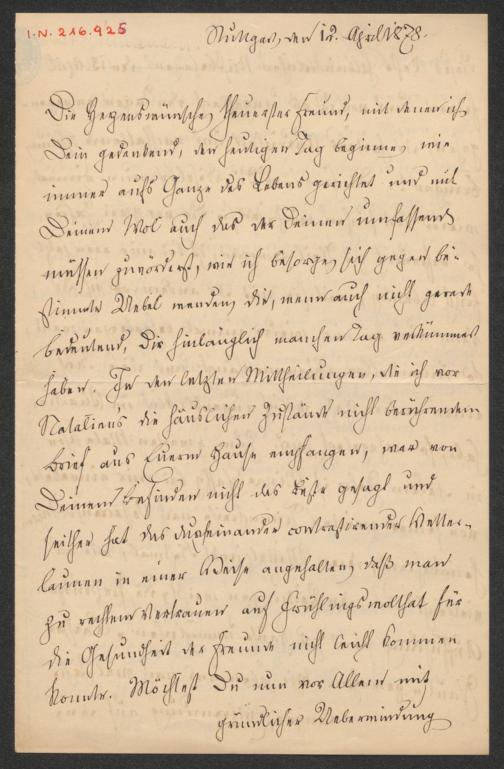 I.N. 216.925
Stuttgart, den 12. April 1878.
Die Segenswünsche, theuerster Freund, mit denen ich
Dein gedenkend, den heutigen Tag beginne, wie
immer aufs Ganze des Lebens gerichtet und mit
Deinem Wol auch das der Deinen umfassend
müssen zuvörderst, wie ich besorge, sich gegen be-
stimmte Uebel wenden, die, wenn auch nicht gerade
bedeutend, Dir hinlänglich manchen Tag verkümmert
haben. In den letzten Mittheilungen, die ich vor
Nataliens die häuslichen Zustände nicht berührendem
Brief aus Euerm Hause empfangen, war von
Deinem Befinden nicht das Beste gesagt und
seither hat das Durcheinander contrastirender Wetter-
launen in einer Weise angehalten, daß man
zu rechtem Vertrauen auf Frühlingswolthat für
die Gesundheit der Freunde nicht leicht kommen
konnte. Möchtest Du nun vor Allem mit
gründlicher Ueberwindung